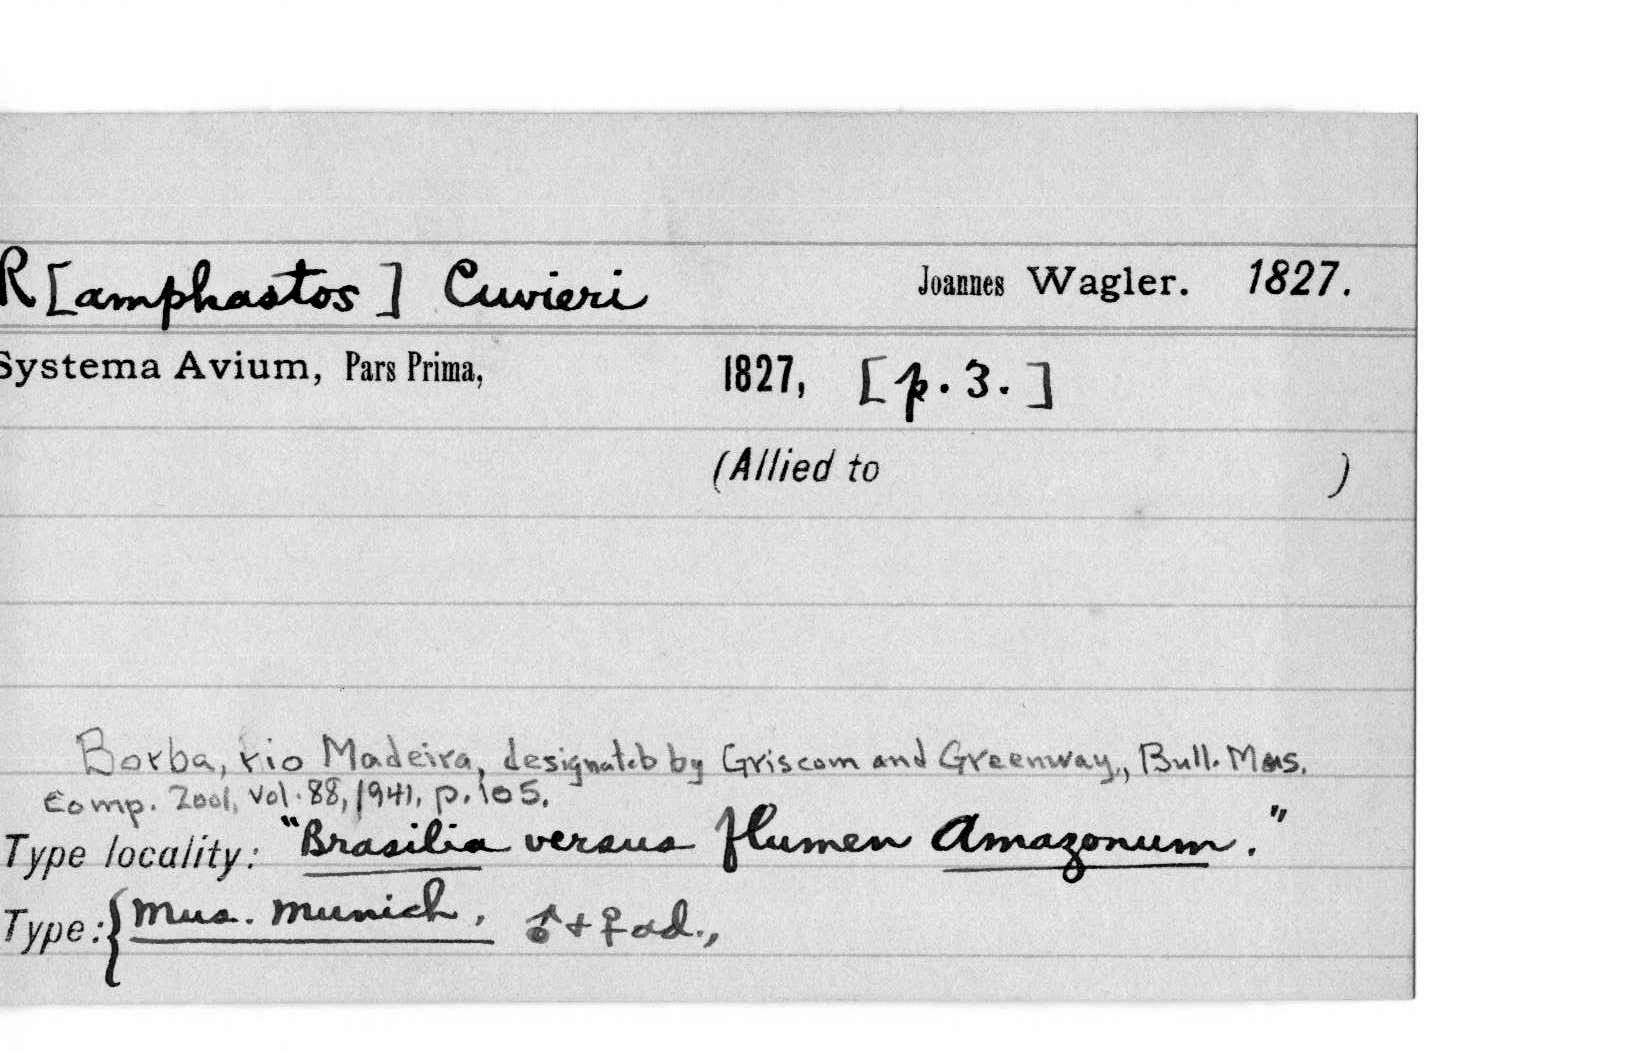 R[amphastos] Cuvieri Joannes Wagler. 1827.
Systema Avium, Pars Prima, 1827, [p. 3.]
(Allied to )
Borba, rio Madeira, designated by Griscom and Greenway, Bull. Mus.
Comp. Zool, Vol. 88, 1941, p. 105.
Type locality: "Brasilia versus flumen Amazonum."
Type: { Mus. Munich, ♂ + ♀ ad.,